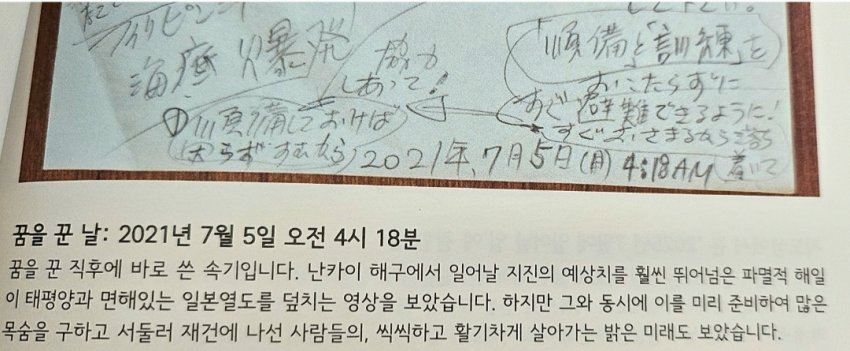 フィリピン
海底 爆発
協力
しあって!
「順備と「訓練」を
おこたらずに
すぐ避難できるように!
①順備しておけば
すぐおさまるから落ち
着いて
2021年,7月5日(月) 4:18AM
꿈을 꾼 날: 2021년 7월 5일 오전 4시 18분
꿈을 꾼 직후에 바로 쓴 속기입니다. 난카이 해구에서 일어날 지진의 예상치를 훨씬 뛰어넘은 파멸적 해일
이 태평양과 면해있는 일본열도를 덮치는 영상을 보았습니다. 하지만 그와 동시에 이를 미리 준비하여 많은
목숨을 구하고 서둘러 재건에 나선 사람들의, 씩씩하고 활기차게 살아가는 밝은 미래도 보았습니다.